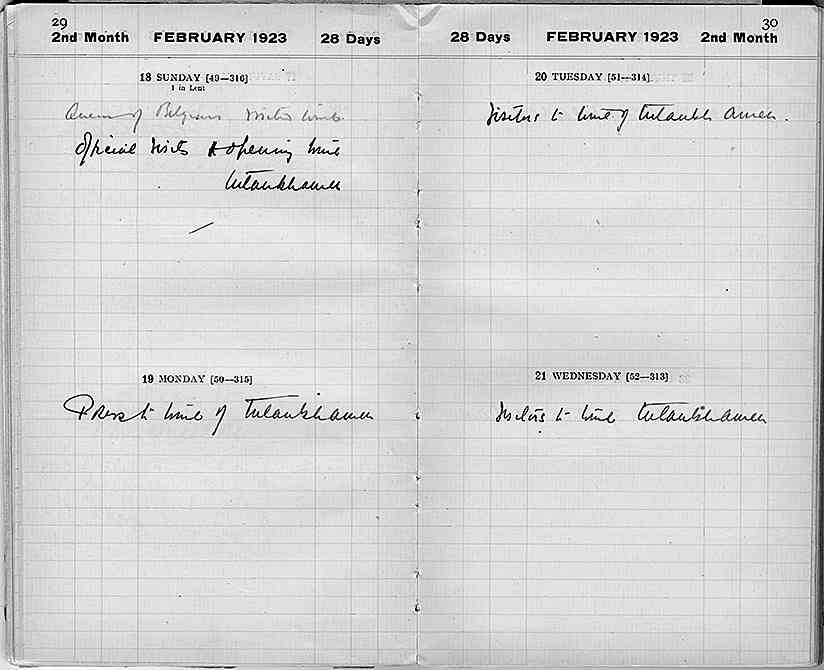 29
2nd Month FEBRUARY 1923 28 Days
18 SUNDAY [49—316]
1 in Lent
Queen of Belgians visited tomb
Official visits & opening tomb
Tutankhamen
19 MONDAY [50—315]
Press to tomb of Tutankhamen
30
28 Days FEBRUARY 1923 2nd Month
20 TUESDAY [51—314]
Visitors to tomb of Tutankh amen.
21 WEDNESDAY [52—313]
Visitors to tomb Tutankhamen